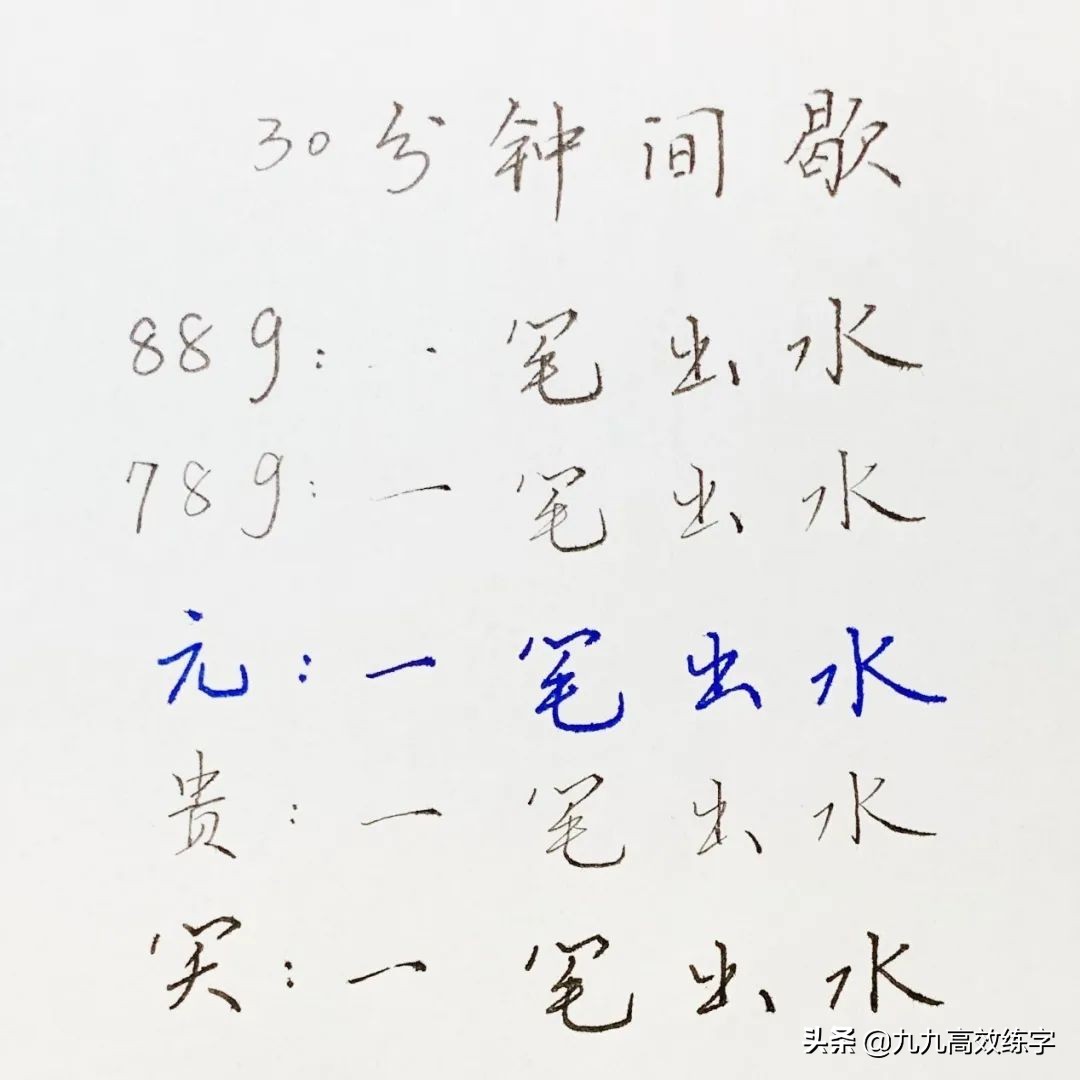 30分钟间歇
889:一笔出水
789:一笔出水
元:一笔出水
贵:一笔出水
笑:一笔出水
头条 @九九高效练字